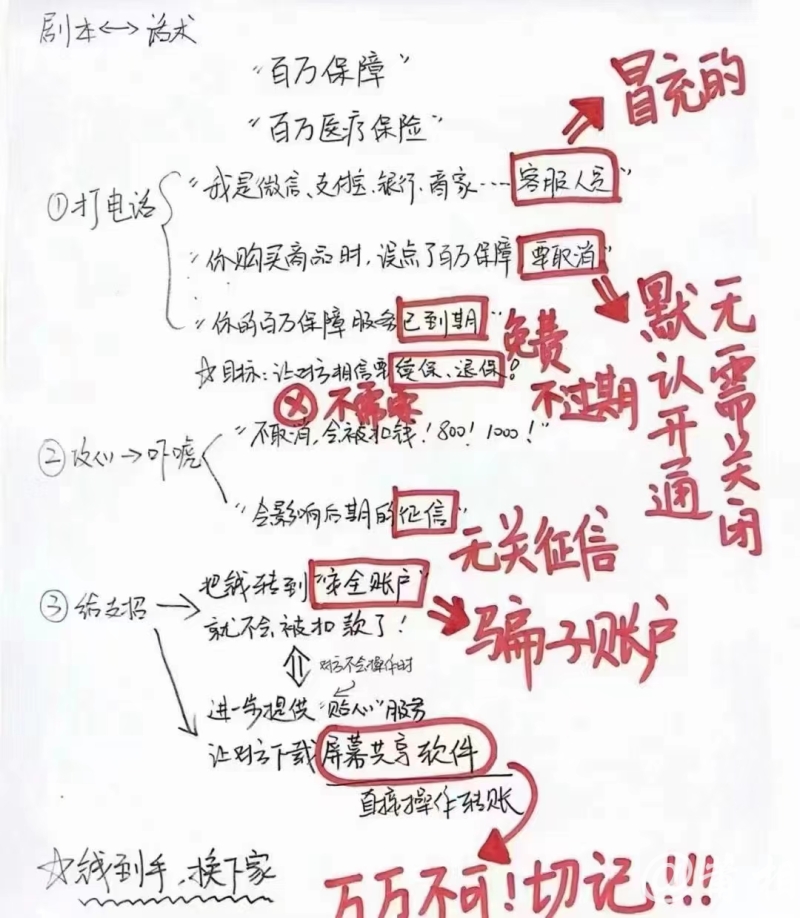 剧本↔话术
"百万保障"
"百万医疗保险"
冒充的
①打电话
"我是微信、支付宝、银行、商家……客服人员"
"你购买商品时,误点了百万保障,要取消"
"你的百万保障服务已到期"
免费
不过期
默认开通
无需关闭
☆目标:让对方相信要续保、退保!
ⓧ不需要
②攻心→吓唬
"不取消,会被扣钱!800!1000!"
"会影响后期的征信"
无关征信
③给支招→
把钱转到"安全账户"
就不会被扣款了!
骗子账户
对方不会操作时
进一步提供"贴心"服务
让对方下载屏幕共享软件
直接操作转账
☆钱到手,换下家
万万不可!切记!!!